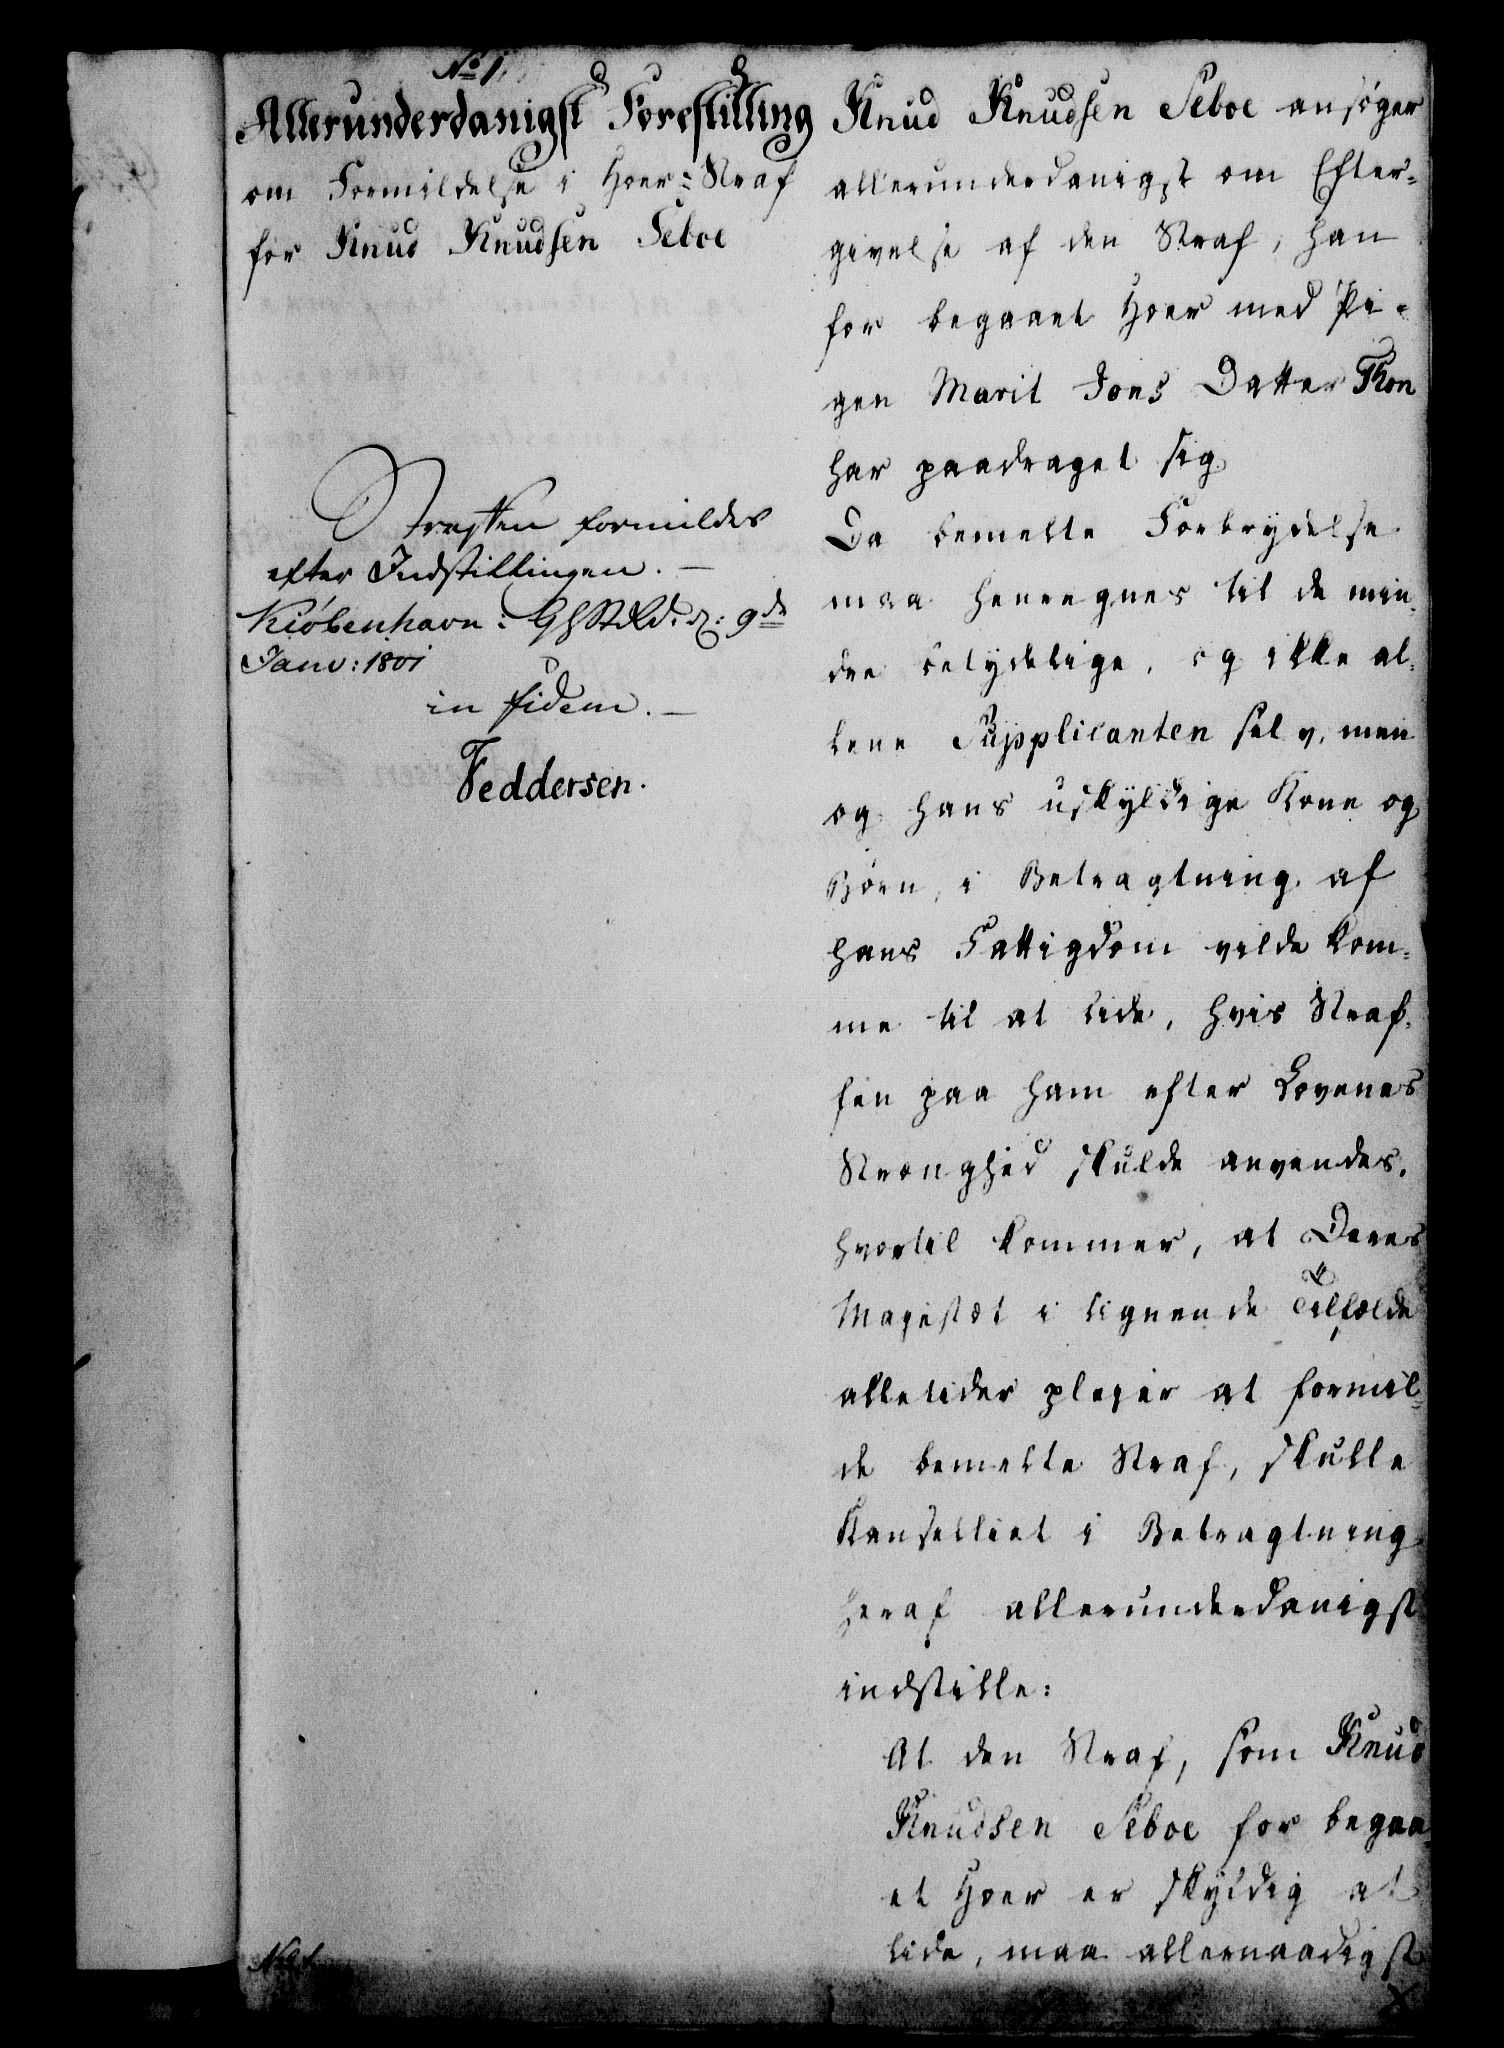 No 1.
Allerunderdanigst Forestilling
om Formildelse i Hoer=Straf
for Knud Knudsen Seboe
Straffen formildes
efter Indstillingen.
Kiöbenhavn: 9de
Janv: 1801
in fidem.
Feddersen.
Knud Knudsen Seboe ansöger
allerunderdanigst om Efter=
givelse af den Straf, han
for begaaet Hoer med Pi=
gen Marit Jons Datter Thon
har paadraget sig
Da bemelte Forbrydelse
maa henregnes til de min=
dre betydelige, og ikke al=
lene Supplicanten selv, men
og hans uskyldige Kone og
Börn, i Betragtning af
hans Fattigdom vilde kom=
me til at lide, hvis Straf=
fen paa ham efter Lovenes
Strenghed skulde anvendes,
hvortil kommer, at Deres
Majestæt i lignende Tilfælde
alletider plejer at formil=
de bemelte Straf, skulle
Kanselliet i Betragtning
heraf allerunderdanigst
indstille:
At den Straf, som Knud
Knudsen Seboe for begaa=
et Hoer er skyldig at
lide, maa allernaadigst